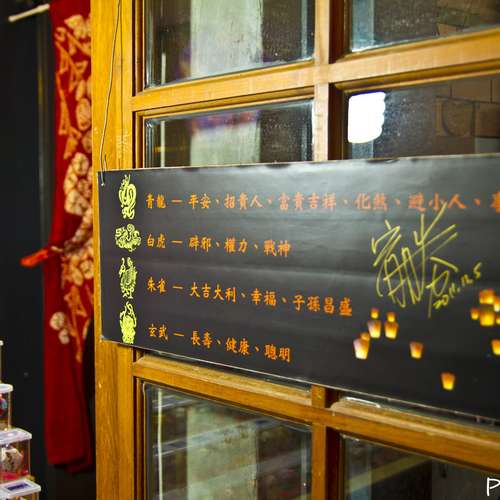 青龍 — 平安、招貴人、富貴吉祥、化煞、避小人、
白虎 — 辟邪、權力、戰神
朱雀 — 大吉大利、幸福、子孫昌盛
玄武 — 長壽、健康、聰明
2011.12.5
P